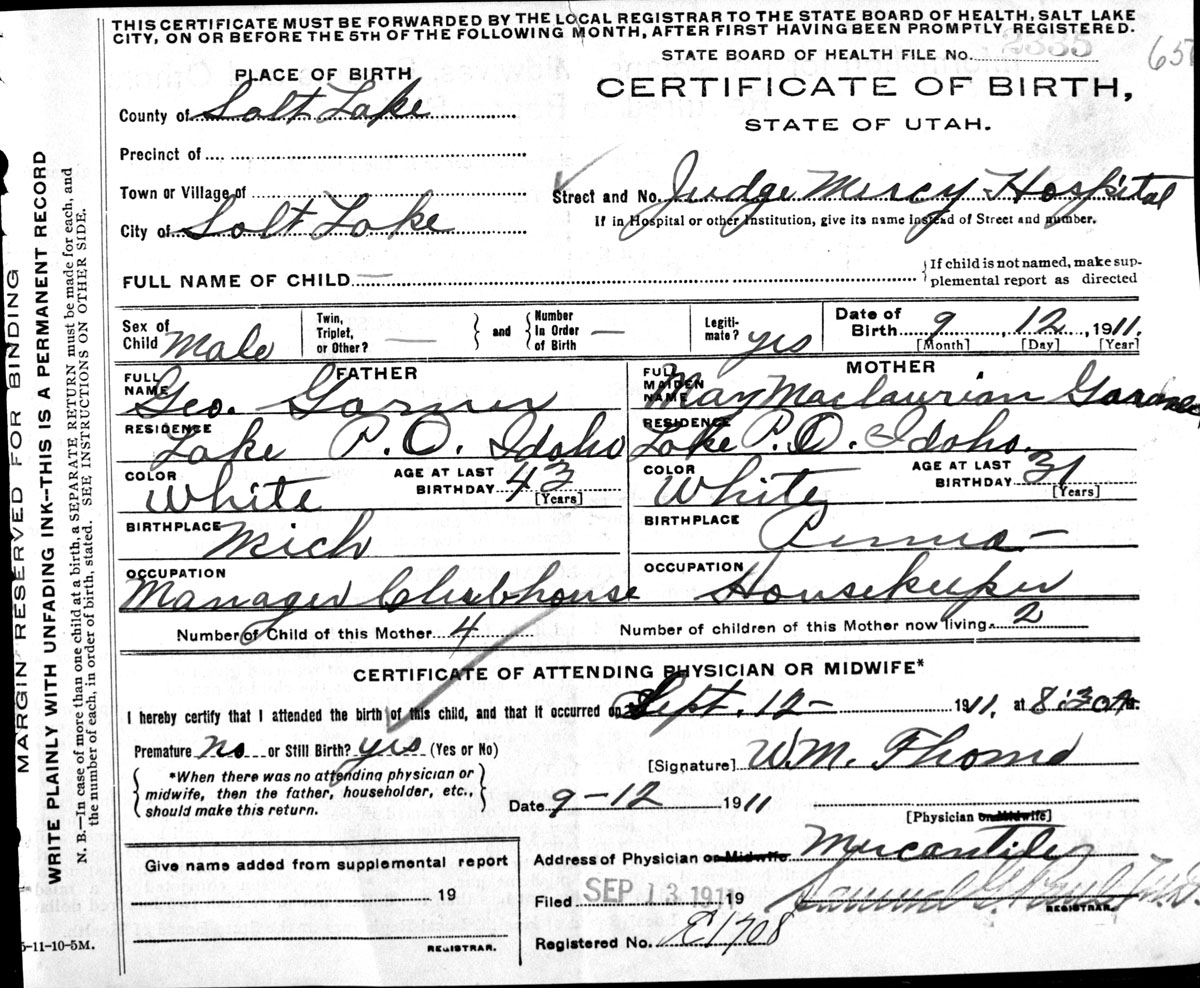 THIS CERTIFICATE MUST BE FORWARDED BY THE LOCAL REGISTRAR TO THE STATE BOARD OF HEALTH, SALT LAKE
CITY, ON OR BEFORE THE 5TH OF THE FOLLOWING MONTH, AFTER FIRST HAVING BEEN PROMPTLY REGISTERED.
STATE BOARD OF HEALTH FILE No. 2335
657
PLACE OF BIRTH
CERTIFICATE OF BIRTH,
STATE OF UTAH.
County of Salt Lake
Precinct of
Town or Village of
Street and No. Judge Mercy Hospital
City of Salt Lake
If in Hospital or other Institution, give its name instead of Street and number.
FULL NAME OF CHILD —
If child is not named, make sup-
plemental report as directed
Sex of Child Male
Twin, Triplet, or Other? —
and
Number In Order of Birth —
Legiti-mate? yes
Date of Birth 9, 12, 1911.
[Month] [Day] [Year]
FATHER
MOTHER
FULL NAME Geo. Garner
FULL MAIDEN NAME May Maclaurian
RESIDENCE Lake P.O. Idaho
RESIDENCE Lake P.O. Idaho.
COLOR White
AGE AT LAST BIRTHDAY 43 [Years]
COLOR White
AGE AT LAST BIRTHDAY 31 [Years]
BIRTHPLACE Mich
BIRTHPLACE Penna—
OCCUPATION Manager Clubhouse
OCCUPATION Housekeeper
Number of Child of this Mother 4
Number of children of this Mother now living 2
CERTIFICATE OF ATTENDING PHYSICIAN OR MIDWIFE*
I hereby certify that I attended the birth of this child, and that it occurred on Sept. 12- 1911, at 8:30
Premature no or Still Birth? yes (Yes or No)
[Signature] W.M.
*When there was no attending physician or
midwife, then the father, householder, etc.,
should make this return.
Date 9-12 1911
[Physician or Midwife]
Give name added from supplemental report
19
REGISTRAR.
Address of Physician or Midwife Mercantile
Filed SEP 13 1911 19
REGISTRAR.
Registered No. 1708
5-11-10-5M.
MARGIN RESERVED FOR BINDING
WRITE PLAINLY WITH UNFADING INK--THIS IS A PERMANENT RECORD
N. B.—In case of more than one child at a birth, a SEPARATE RETURN must be made for each, and
the number of each, in order of birth, stated. SEE INSTRUCTIONS ON OTHER SIDE.